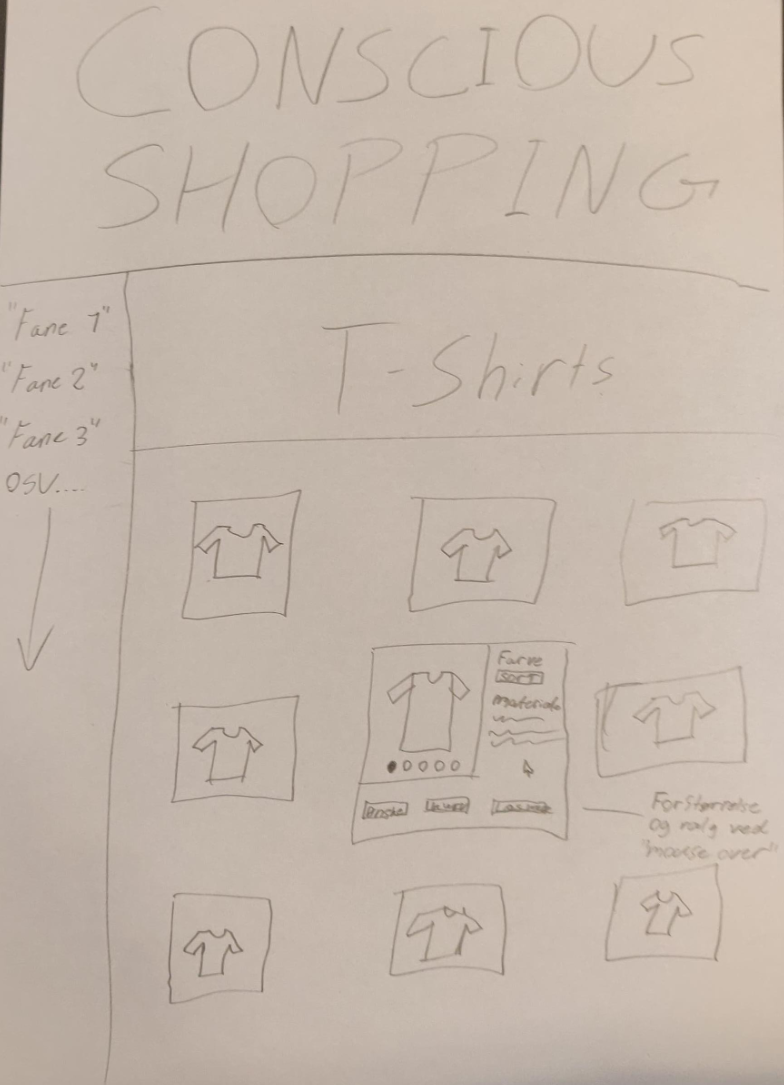 CONSCIOUS
SHOPPING
"Fane 1"
"Fane 2"
"Fane 3"
OSV....
T-Shirts
Farve
SORT
Materiale
Forstørrelse
og valg ved
"mouse over"